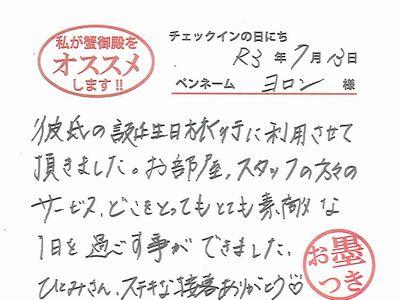 私が蟹御殿を
オススメ
します!!
チェックインの日にち
R3年7月13日
ペンネーム ヨロン 様
彼氏の誕生日旅行に利用させて
頂きました。お部屋、スタッフの方々の
サービス、どこをとってもとても素敵な
1日を過ごす事ができました。
ひとみさん、ステキな接客ありがとう♡
お墨
つき